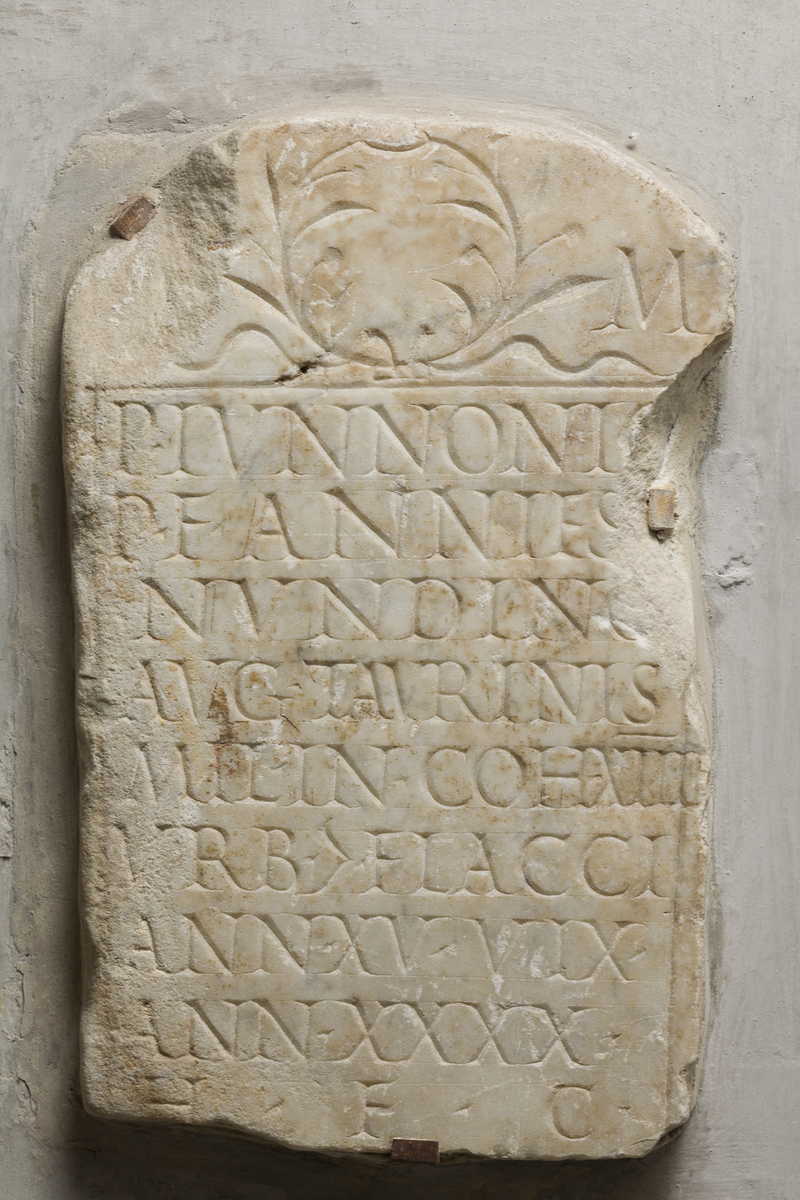 M
P·IVNNONI
P·F·ANNIES
NVNDINV
AVG·TAVRINIS
MIL·IN·COH·XIIII
VRB·>·FLACCI
ANN·XV·VIX·
ANN·XXXX·
H·F·C·